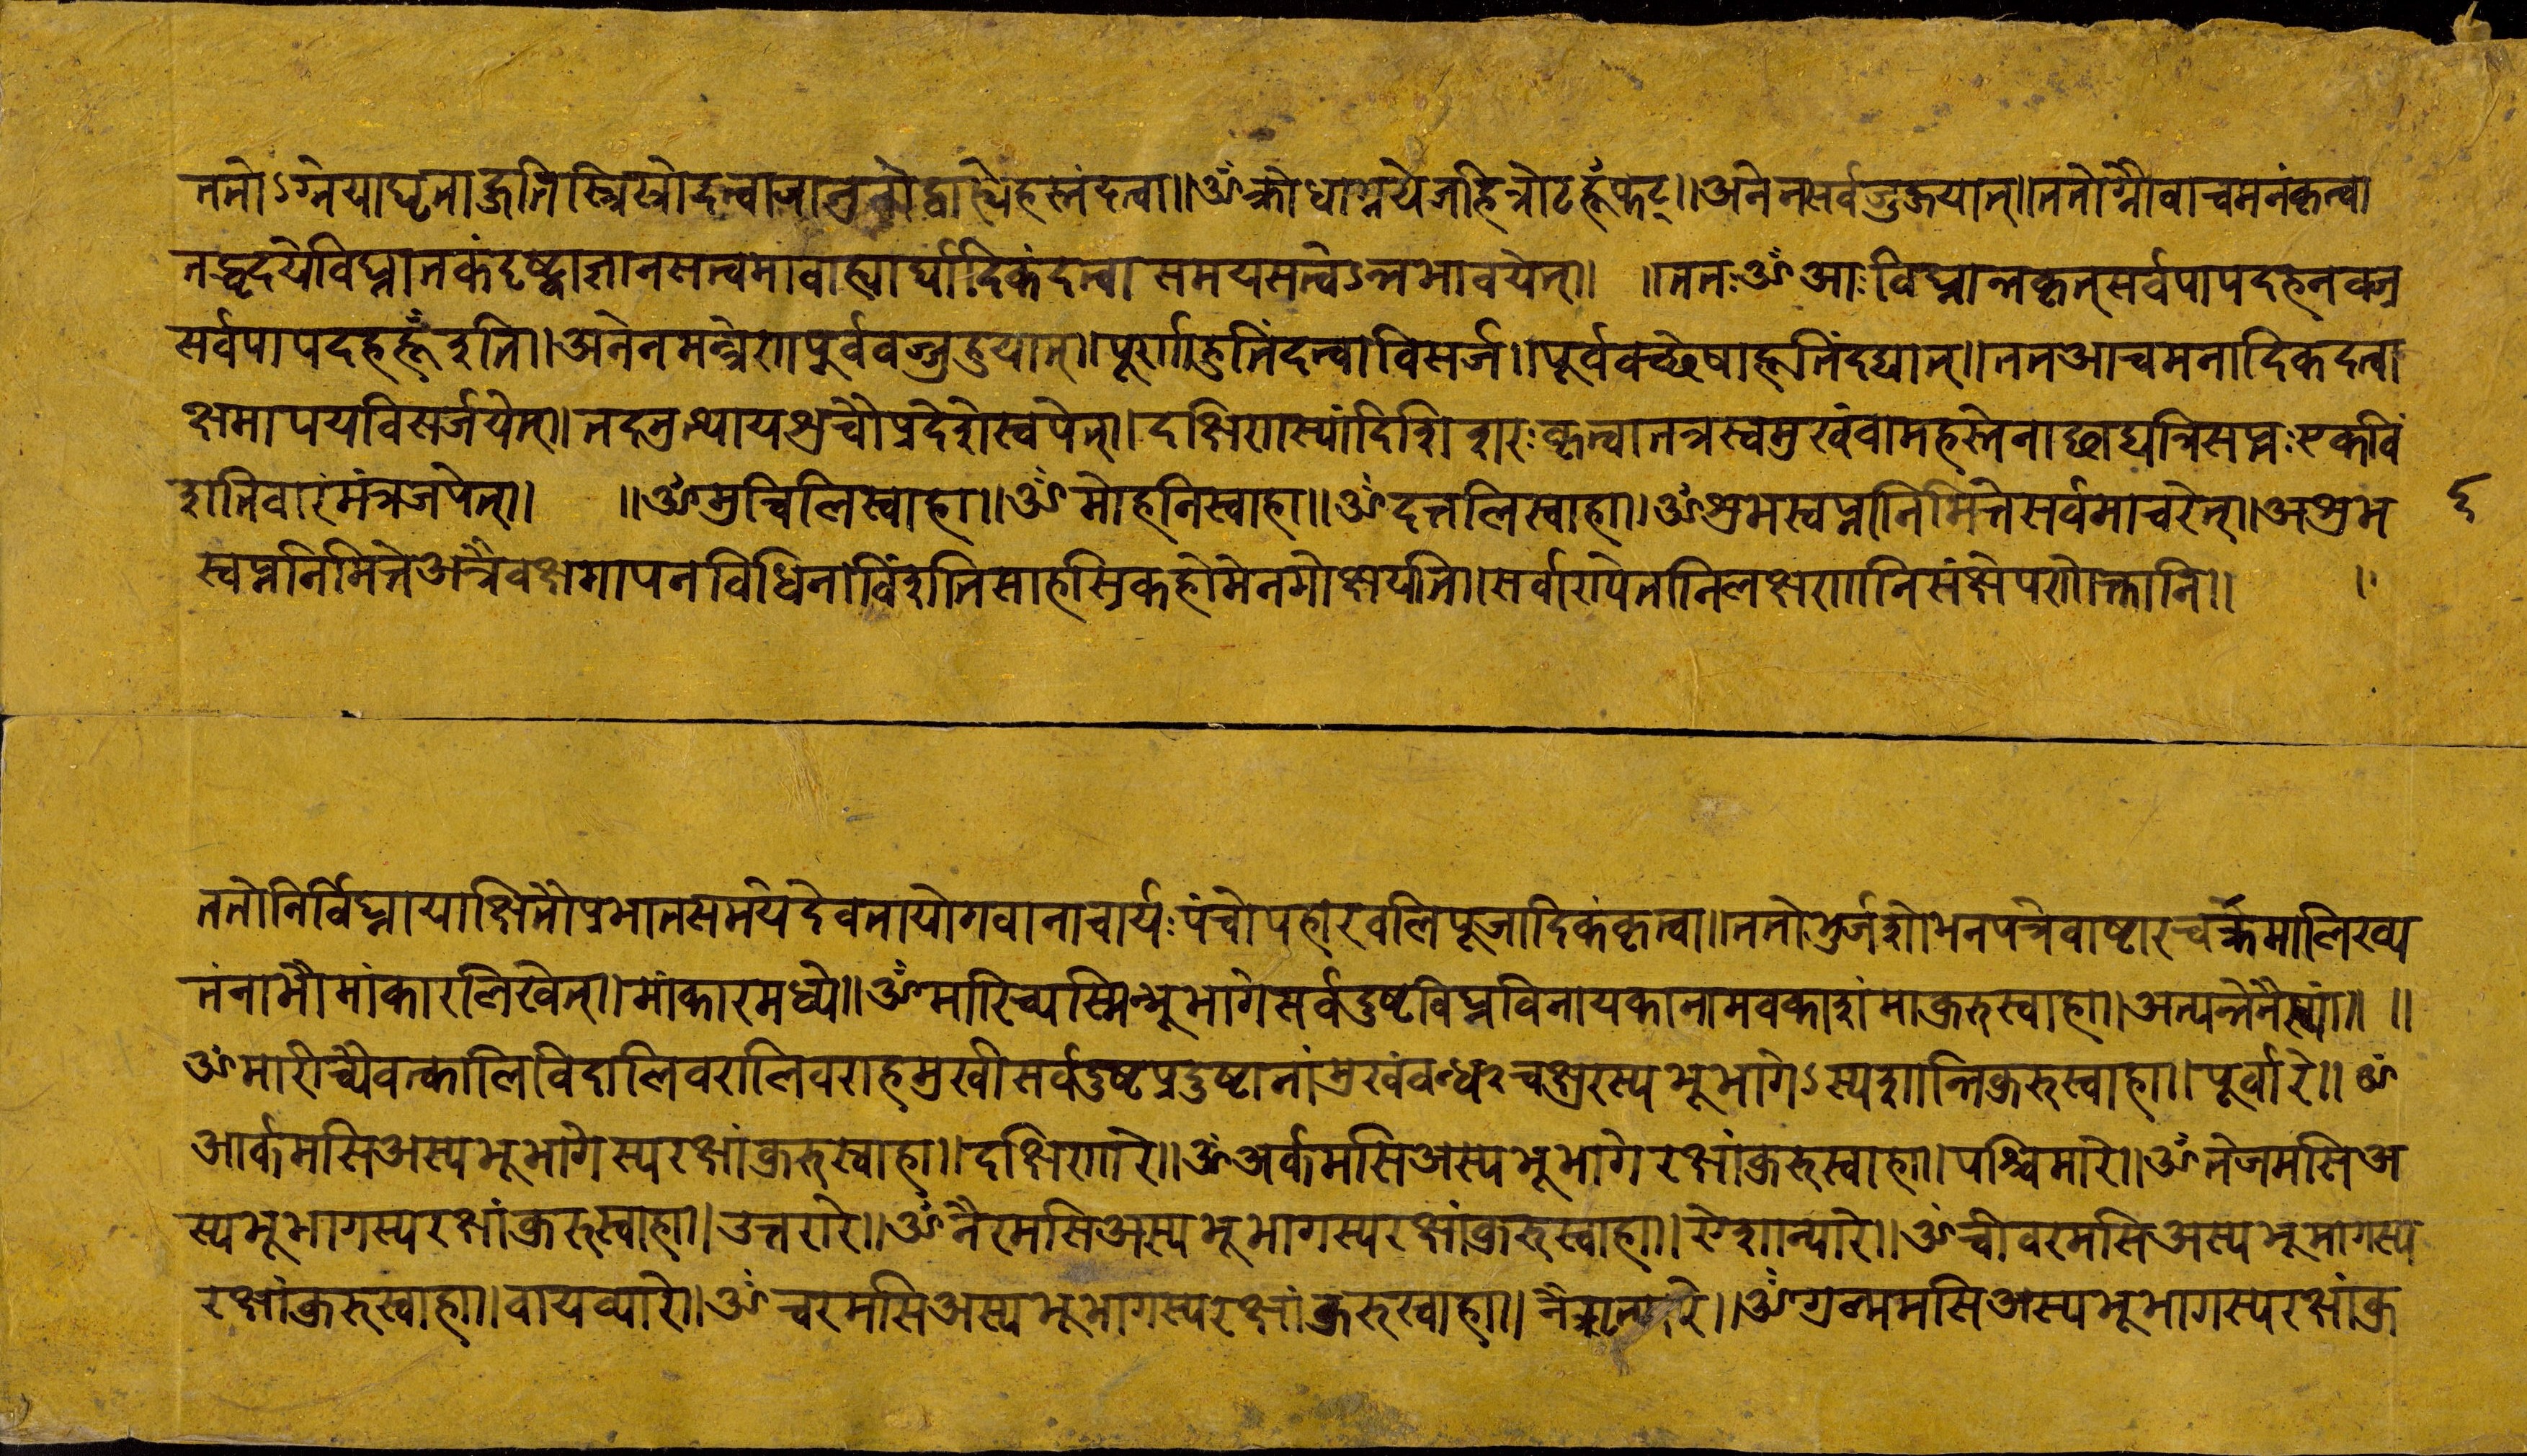 ततोऽग्नेयाघृताहुतिस्त्रिस्त्रोदत्वाजानुनोद्वाह्येहस्तंदत्वा॥ॐक्रोधाग्नयेजहित्रोटहूँफट्॥अनेनसर्वजुहुयात्॥ततोग्नौवाचमनंकृत्वा
तद्धृदयेविघ्नातकंदृष्ट्वाज्ञानसत्वमावाह्यार्घादिकंदत्वासमयसत्वेऽन्तभावयेत्॥ ॥ततःॐआःविघ्नान्तकृत्सर्वपापदहनवज्र
सर्वपापदहहूँइति॥अनेनमन्त्रेणपूर्ववज्जुहुयात्॥पूर्णाहुतिंदत्वाविसर्ज॥पूर्ववच्छेषाहूतिंदद्यात्॥ततआचमनादिकंदत्वा
क्षमापयविसर्जयेत्॥तदनुत्थायशुचौप्रदेशेस्वपेत्॥दक्षिणस्यांदिशिशरःकृत्वातत्रस्वमुखंवामहस्तेनाछाद्यत्रिसप्तःएकविं
शतिवारंमंत्रजपेत्॥ ॥ॐमुचिलिस्वाहा॥ॐमोहनिस्वाहा॥ॐदत्तलिस्वाहा॥ॐशुभस्वप्नानिमित्तेसर्वमाचरेत्॥अशुभ
स्वप्ननिमित्तेअत्रैवक्षमापनविधिनाविंशतिसाहस्रिकहोमेनमोक्षयति॥सर्वाण्येतानिलक्षणानिसंक्षेपणोक्तानि॥ ॥
ततोनिर्विघ्नायाक्षितौप्रभातसमयेदेवतायोगवानाचार्यःपंचोपहारवलिपूजादिकंकृत्वा॥ततोभुर्जशोभनपत्रेवाष्टारचक्रमालिख्य
तंनाभौमांकारलिखेत्॥मांकारमध्ये॥ॐमारिच्यस्मिन्भूभागेसर्वदुष्टविघ्नविनायकानामवकाशंमाकुरुस्वाहा॥अत्यन्तेनैस्यां॥ ॥
ॐमारीच्यैवत्कालिविदालिवरालिवराहमुखीसर्वदुष्टप्रदुष्टानांमुखंवन्धरचक्षुरस्यभूभागेऽस्यशान्तिकुरुस्वाहा॥पूर्वारे॥ॐ
आर्कमसिअस्यभूभागेस्यरक्षांकुरुस्वाहा॥दक्षिणारे॥ॐअर्कमसिअस्यभूभागेरक्षांकुरुस्वाहा॥पश्चिमारे॥ॐतेजमसिअ
स्यभूभागस्यरक्षांकुरुस्वाहा॥उत्तरारे॥ॐनैरमसिअस्यभूभागस्यरक्षांकुरुस्वाहा॥ऐशान्यारे॥ॐचीवरमसिअस्यभूभागस्य
रक्षांकुरुस्वाहा॥वायव्यारे॥ॐचरमसिअस्यभूभागस्यरक्षांकुरुस्वाहा॥नैऋत्यारे॥ॐगुल्ममसिअस्यभूभागस्यरक्षांकु